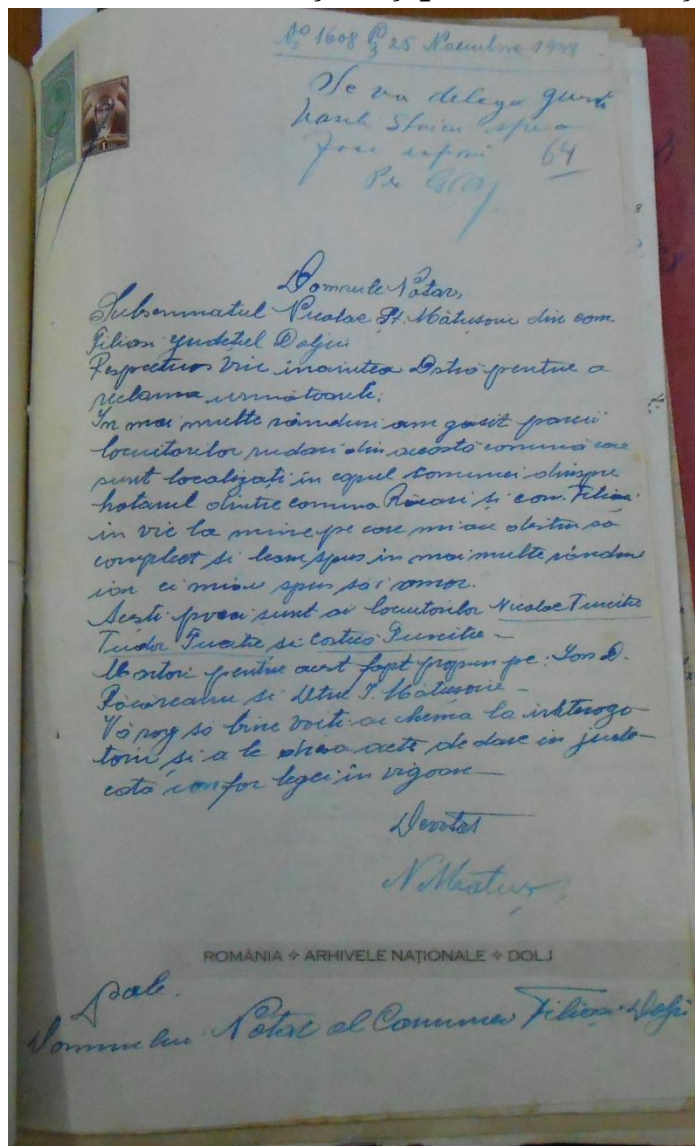 No 1608 25 Noembrie
Se va delega
Vasile Staicu spre a
face 64
Domnule Notar,
Subsemnatul Nicolae Șt. Mătușoiu din com.
Filiași județul Dolju
Respectuos vin înaintea Dstră pentru a
reclama următoarele;
În mai multe rânduri am găsit porcii
locuitorilor rudari din această comună care
sunt localizați în capul comunei dinspre
hotarul dintre comuna Răcari și com. Filiași
în vie la mine pe care miau destru să
complect si leam spus in mai multe rânduri
iar ei miau spus săi omor.
Acesti porci sunt ai locuitorilor Nicolae
Tudor și
Martori pentru acest fapt propun pe: Ion D.
și
Vă rog să bine voiți ai chema la interoga
tori și a le acte de dare in jude
cată legei în vigoare
Devotat
ROMÂNIA ❖ ARHIVELE NAȚIONALE ❖ DOLJ
Dsale
Domnului Notar al Comunei Filiași-Dolj